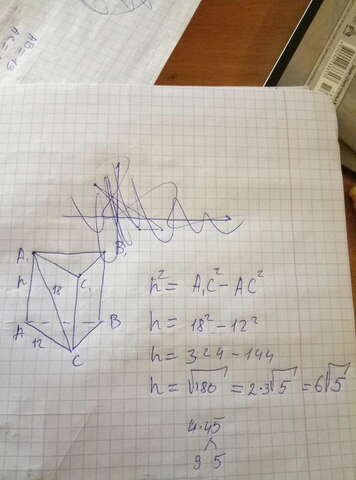 AB = 13
AC =
A₁ B₁
h 18 C₁
A B
12
C
h² = A₁C² - AC²
h = 18² - 12²
h = 324 - 144
h = √180 = 2·3√5 = 6√5
4·45
9 5